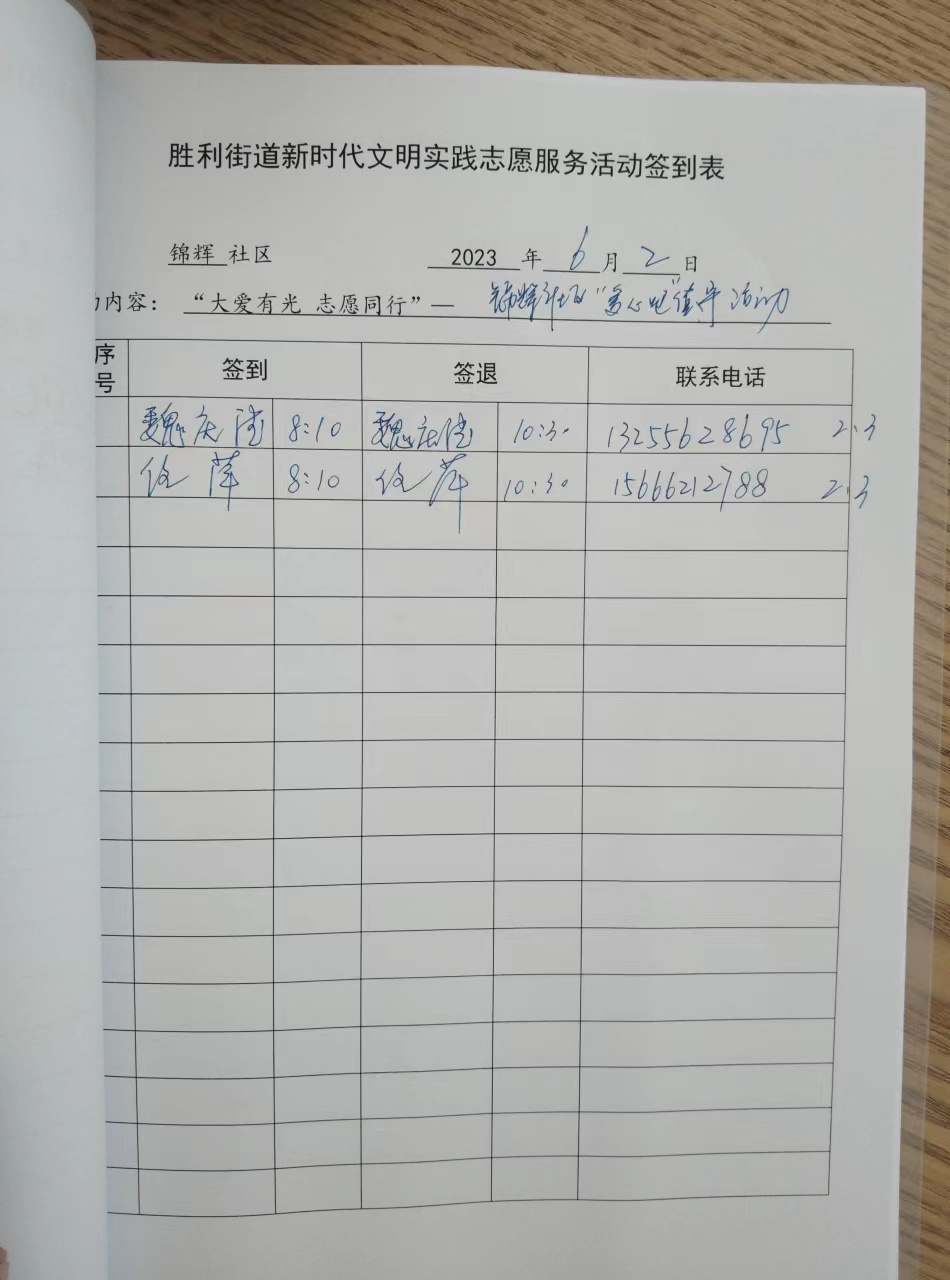 胜利街道新时代文明实践志愿服务活动签到表
锦辉 社区 2023 年 6 月 2 日
内容: “大爱有光 志愿同行”— 锦辉社区“ 值守活动
序号 签到 签退 联系电话
魏庆 8:10 魏庆 10:30 13255628695 2.3
萍 8:10 萍 10:30 15666212788 2.3